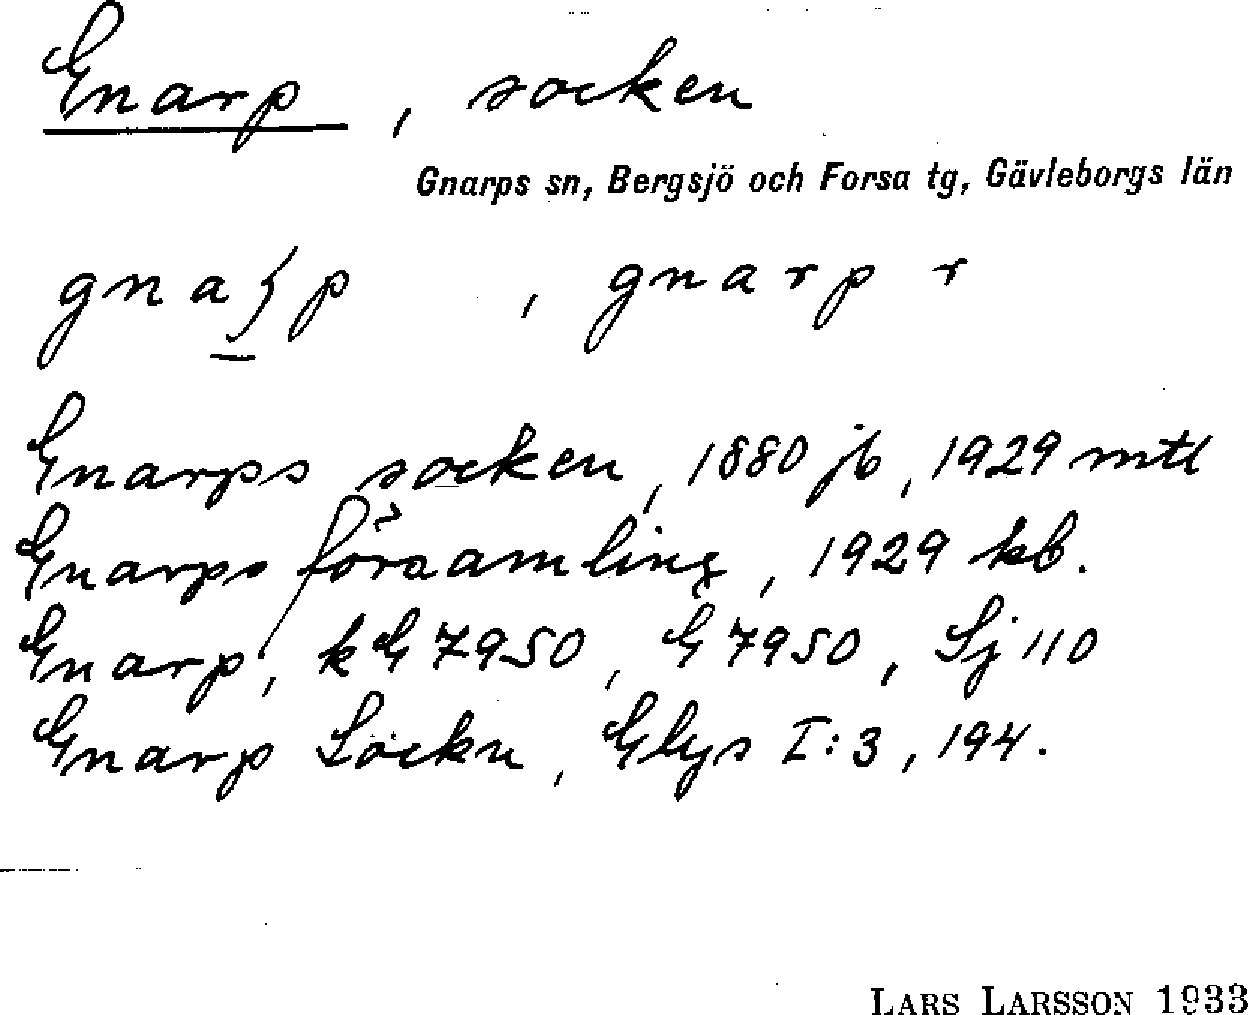 Gnarp, socken
Gnarps sn, Bergsjö och Forsa tg, Gävleborgs län
, gnarp r
Gnarps socken, 1880 jb, 1929 mtl
Gnarps församling, 1929 kb.
Gnarp, kG 7950, G 7950, Sj 110
Gnarp Sockn, Glys I:3, 194.
LARS LARSSON 1933